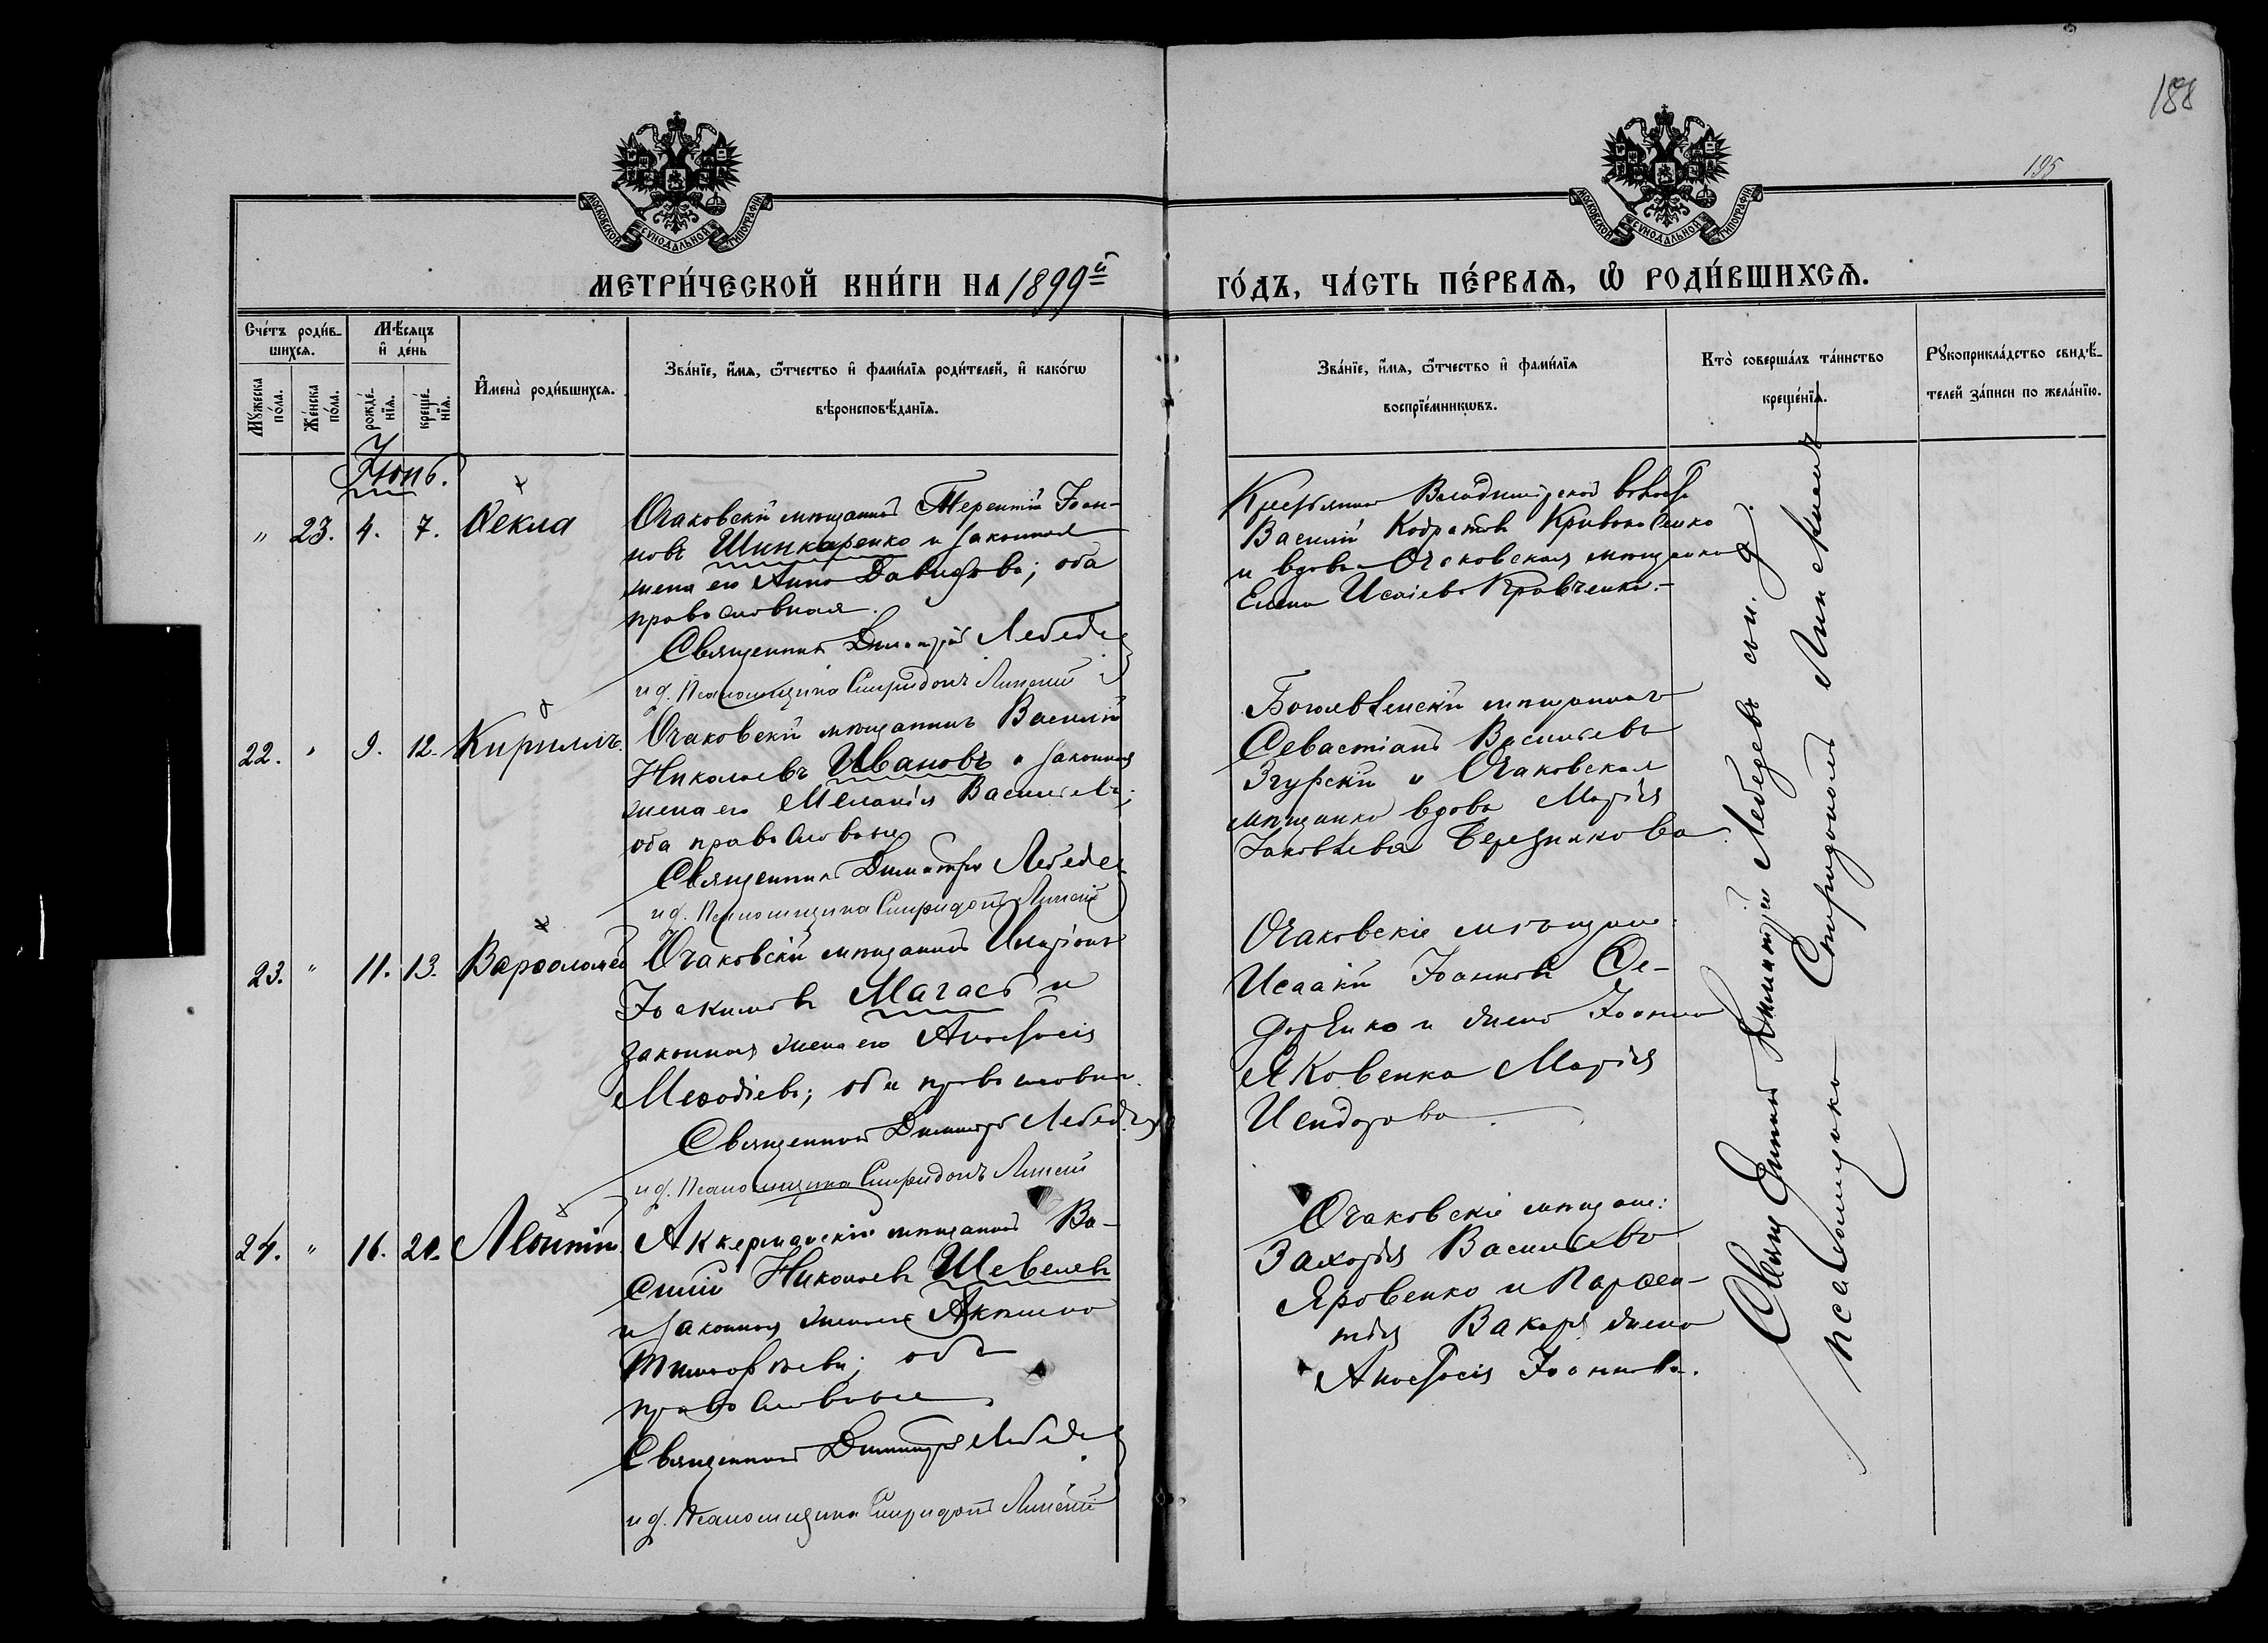 188
195
МОСКОВСКОЙ СѴНОДАЛЬНОЙ ТИПОГРАФІИ
МОСКОВСКОЙ СѴНОДАЛЬНОЙ ТИПОГРАФІИ
МЕТРИ́ЧЕСКОЙ КНИ́ГИ НА 1899й
ГО́ДЪ, ЧА́СТЬ ПЕ́РВАѦ, Ѡ҆ РОДИ́ВШИХСѦ.
Сче́тъ роди́в-
шихсѧ.
Мꙋ́жеска по́ла.
Же́нска по́ла.
Мѣ́сѧцъ
и҆ де́нь
рожде́-
нїѧ.
креще́-
нїѧ.
И҆мена̀ роди́вшихсѧ.
Зва́нїе, и҆́мѧ, ѻ҆́тчество и҆ фами́лїѧ роди́телей, и҆ како́гѡ
вѣроисповѣ́данїѧ.
Зва́нїе, и҆́мѧ, ѻ҆́тчество и҆ фами́лїѧ
воспрїе́мникѡвъ.
Кто̀ соверша́лъ та́инство
креще́нїѧ.
Рꙋкоприкла́дство свидѣ́-
телей за́писи по жела́нїю.
Іюнь.
" 23. 4. 7. Ѳекла
Очаковскій мѣщанинъ Терентій Іоан-
новъ Шинкаренко и законная
жена его Анна Давидова; оба
православная.
Священникъ Димитрій Лебедев
и д. Псаломщика Спиридонъ Линскій
Крестьянинъ Владимірской волости
Василий Кодратовъ
и вдова Очаковская мѣщанка
Елена Исаіева Кравченко.
22. " 9. 12. Кириллъ.
Очаковскій мѣщанинъ Василій
Николаевъ Ивановъ и законная
жена его Меланія Васильева;
оба православные
Священникъ Димитрій Лебедев
и д. Псаломщика Спиридонъ Линскій
Богоявленскій мѣщанинъ
Севастіанъ Васильевъ
Згурскій и Очаковская
мѣщанка вдова Марія
Іаковлева Березнякова
23. " 11. 13. Варѳоломей
Очаковскій мѣщанинъ Иларіонъ
Іоакимовъ Магасъ и
законная жена его Анастасія
Меѳодіева; оба православные.
Священникъ Димитрій Лебедев
и д. Псаломщика Спиридонъ Линскій
Очаковскіе мѣщане:
Исаакій Іоанновъ Ѳе-
доренко и жена Іоанна
Яковенка Марія
Исидорова.
24. " 16. 20. Леонтій.
Аккерманскій мѣщанинъ Ва-
силій Николаевъ Шевелевъ
и законная жена его
Тимоѳеева; оба
православные.
Священникъ Димитрій Лебедев
и д. Псаломщика Спиридонъ Линскій
Очаковскіе мѣщане:
Захарія Васильевъ
Яровенко и Парѳен-
тія жена
Анастасія Іоаннова.
Священникъ Димитрій Лебедевъ съ и. д.
псаломщика Спиридономъ Линскимъ